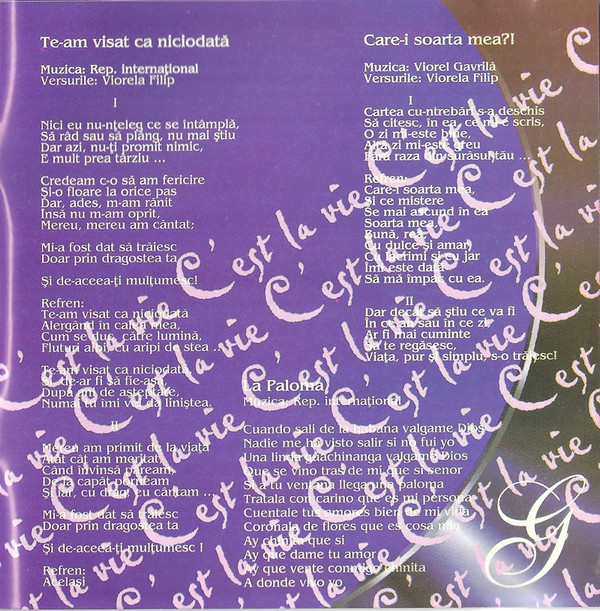 Te-am visat ca niciodată
Muzica: Rep. internațional
Versurile: Viorela Filip
I
Nici eu nu-nțeleg ce se întâmplă,
Să râd sau să plâng, nu mai știu
Dar azi, nu-ți promit nimic,
E mult prea târziu ...
Credeam c-o să am fericire
Și-o floare la orice pas
Dar, ades, m-am rănit
Însă nu m-am oprit,
Mereu, mereu am cântat;
Mi-a fost dat să trăiesc
Doar prin dragostea ta
Și de-aceea-ți mulțumesc!
Refren:
Te-am visat ca niciodată
Alergând în calea mea,
Cum se duc, către lumină,
Fluturi albi, cu aripi de stea ...
Te-am visat ca niciodată,
Și, de-ar fi să fie-așa,
După ani de așteptare,
Numai tu îmi vei da liniștea.
II
Mereu am primit de la viață
Atât cât am meritat
Când învinsă păream
De la capăt porneam
Și iar, cu drag, eu cântam ...
Mi-a fost dat să trăiesc
Doar prin dragostea ta
Și de-aceea-ți mulțumesc !
Refren:
Același
Care-i soarta mea?!
Muzica: Viorel Gavrilă
Versurile: Viorela Filip
I
Cartea cu-ntrebări s-a deschis
Să citesc, în ea, ce mi-e scris,
O zi mi-este bine,
Alta zi mi-este greu
Fără raza din surâsun tău ...
Refren:
Care-i soarta mea,
Și ce mistere
Se mai ascund în ea
Soarta mea,
Bună, rea,
Cu dulce și amar
Cu lacrimi și cu jar
Îmi este dată
Să mă împac cu ea.
II
Dar decât să știu ce va fi
În ce an sau în ce zi,
Ar fi mai cuminte
Să te regăsesc,
Viața, pur și simplu, s-o trăiesc!
La Paloma
Muzica: Rep. internațional
Cuando sali de la habana valgame Dios
Nadie me ha visto salir si no fui yo
Una linda guachinanga valgame Dios
Que se vino tras de mi que si senor
Si a tu ventana llega una paloma
Tratala con carino que es mi persona
Cuentale tus amores bien de mi vida
Coronala de flores que es cosa mia
Ay chinita que si
Ay que dame tu amor
Ay que vente conmigo chinita
A donde vivo yo
C'est la vie C'est la vie C'est la vie
G